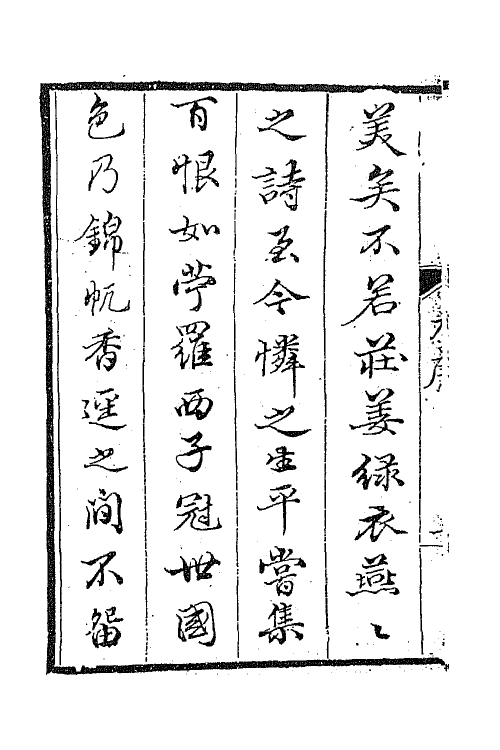 美矣不若莊姜緑衣燕〻
之詩至今憐之生平嘗集
百恨如苧羅西子冠世國
色乃錦帆香逕之間不留